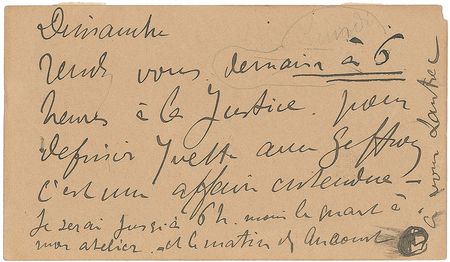 Dimanche
rendez vous demain à 6
heures à la Justice pour
definir Yvette avec Geffroy
c'est une affaire entendue –
Je serai jusqu'à 6 h. moins le quart à
mon atelier. et le matin ch Ancourt
à vous Lautrec